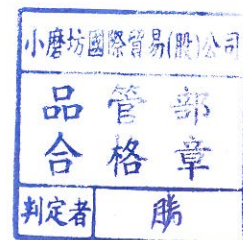 小磨坊國際貿易(股)公司
品管部
合格章
判定者 勝